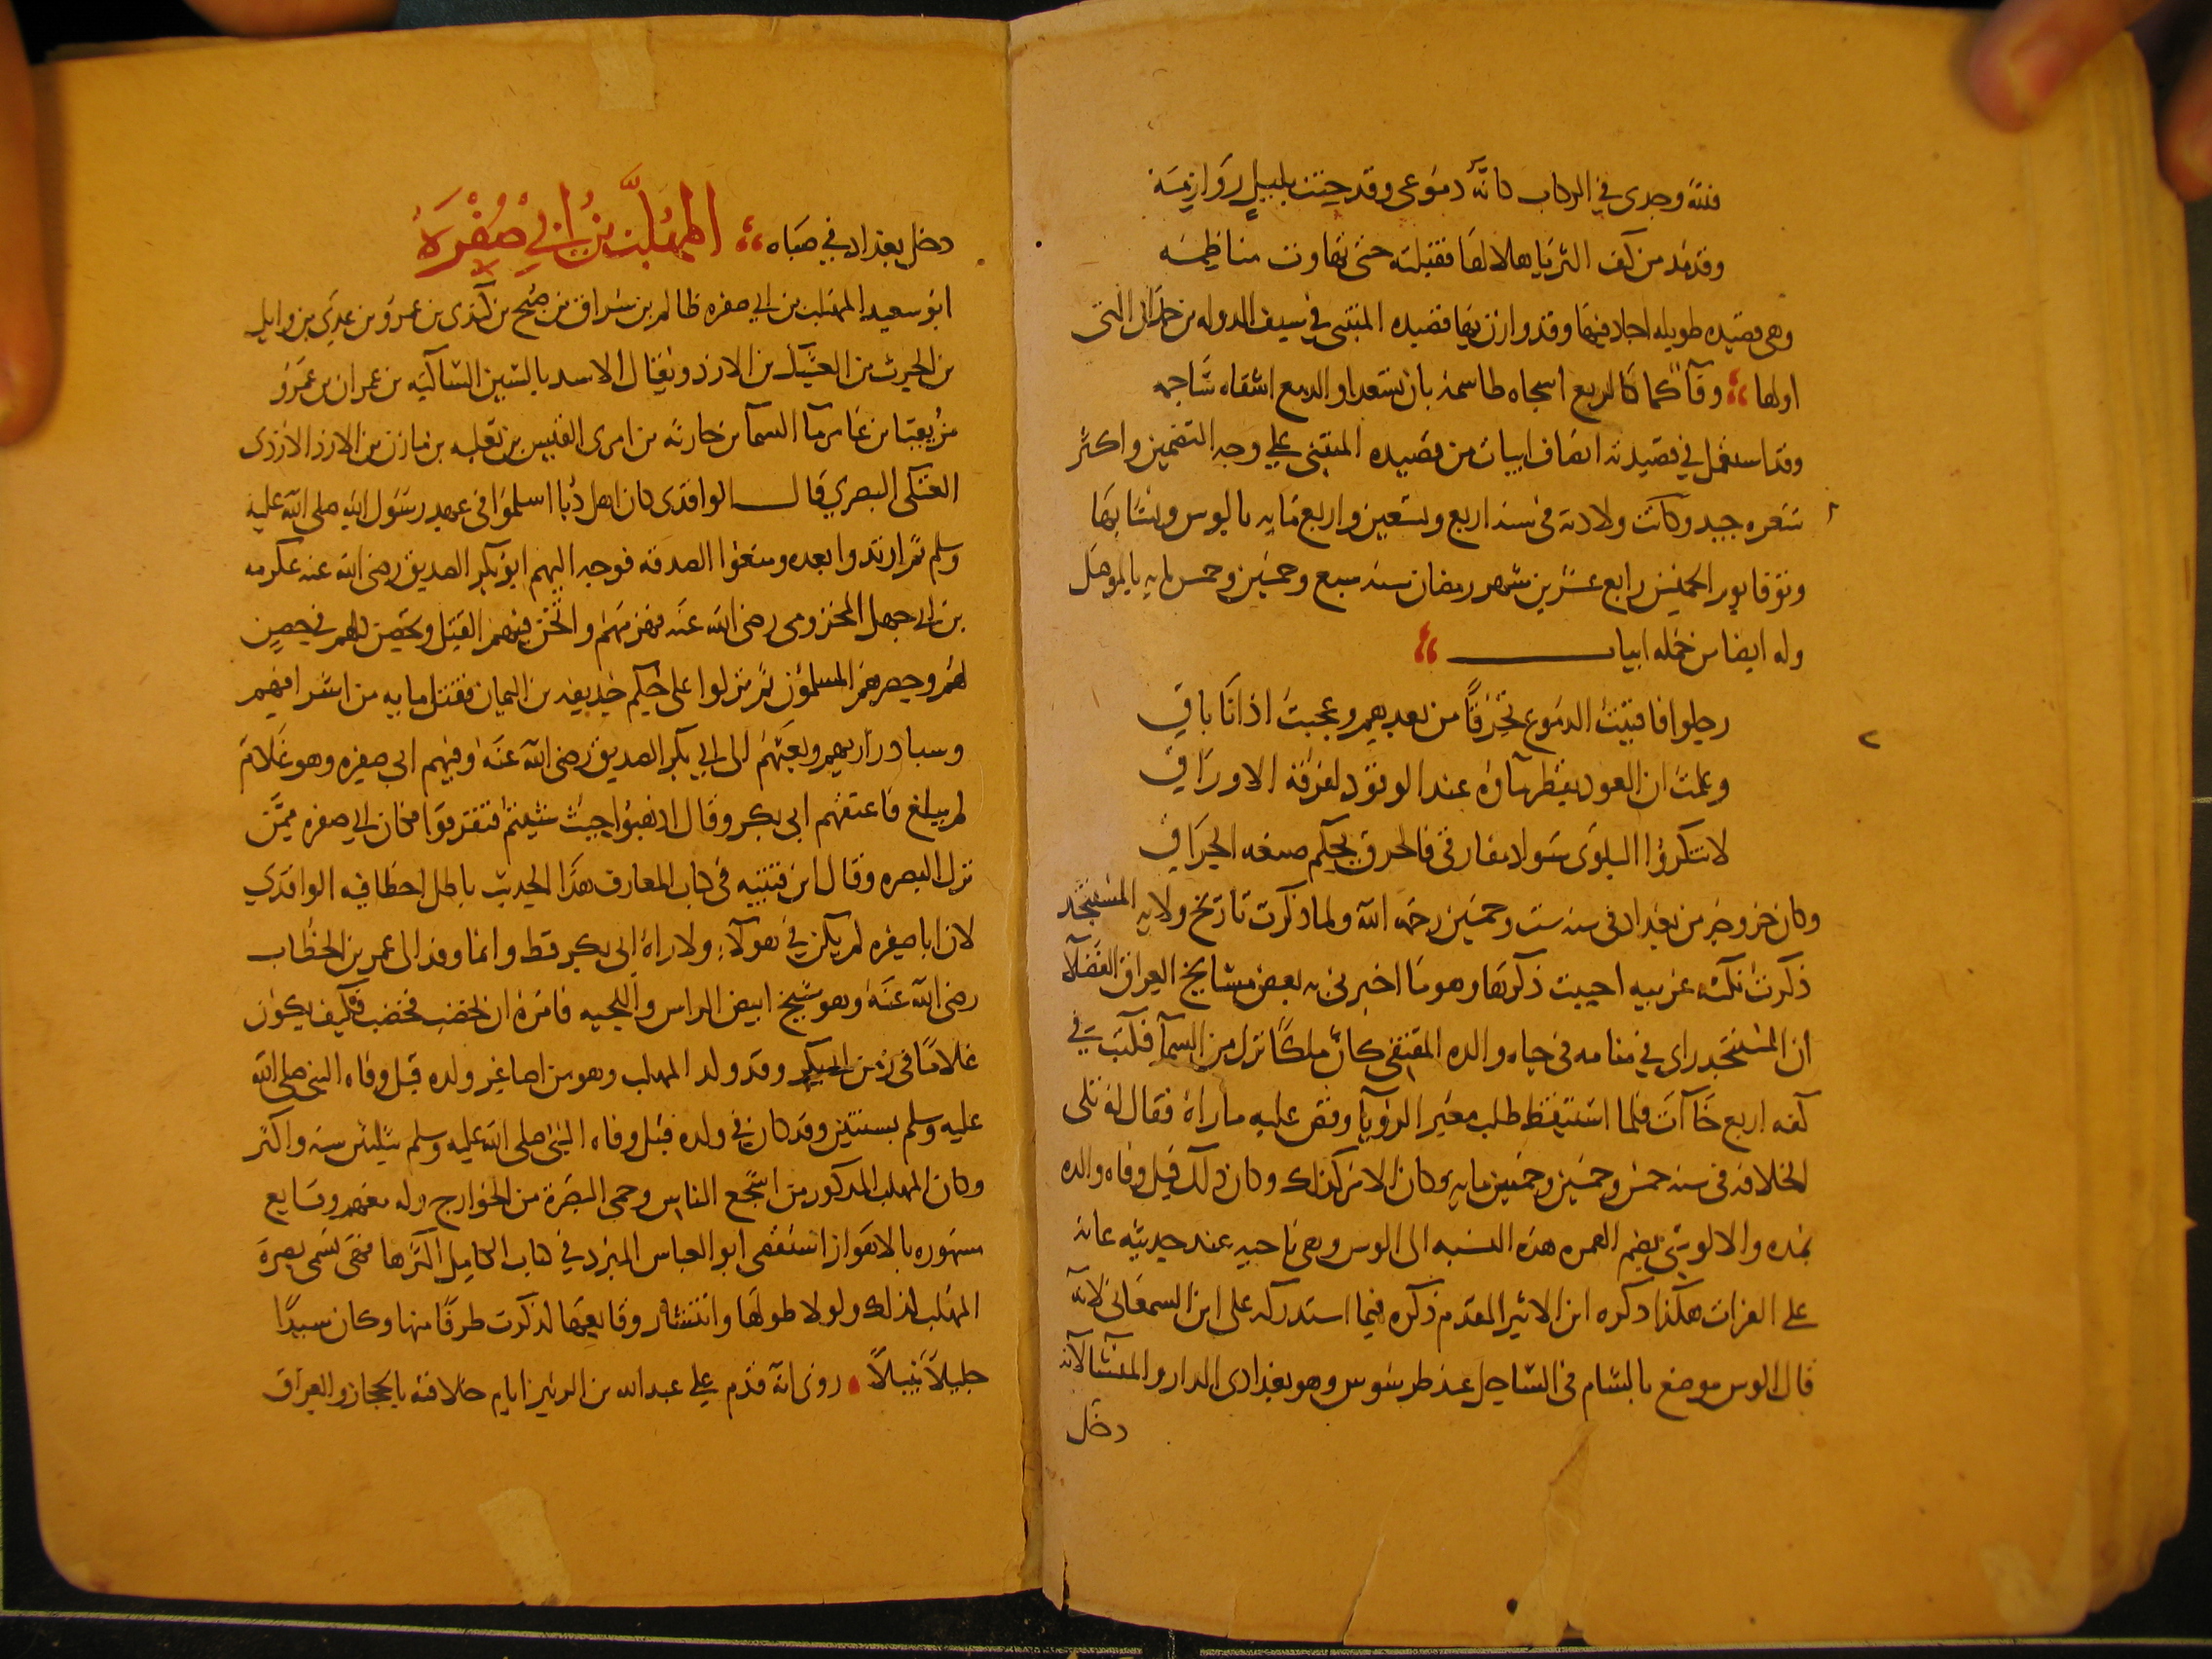 فتنه وجدى في الركاب كانّه دموعى وقد حنت بليل روازمه
وقد مد من كف الثريا هلالها فقبلته حتى تهاوت مناظمه
وهى قصيده طويله اجاد فيها وقد وازن بها قصيده المتنبى في سيف الدوله بن حمدان التى
اولها وفآكما كالربع اسجاه طاسمه بان تسعدا والدمع اشفاه ساجمه
وقد استعمل في قصيدته انصاف ابيات من قصيده المتنبى على وجه التضمين واكثر
شعره جيد وكانت ولادته فى سنه اربع وتسعين واربع مايه بالوس ونشا بها
وتوفا يوم الخميس رابع عشرين شهر رمضان سنه سبع وخمسين وخمس مايه بالموصل
وله ايضا من جمله ابيات
رحلوا فافنيت الدموع تحرقًا من بعدهم وعجبت اذ انا باقي
وعلمت ان العود يقطر مآؤه عند الوقود لفرقه الاوراق
لا تنكروا البلوى سواد مفارقى فالحرق بحكم صنعه الحراق
وكان خروجه من بغداد فى سنه ست وخمسين رحمه الله ولما ذكرت تاريخ ولايه المستنجد
ذكرت نكته غريبه احببت ذكرها وهو ما اخبرنى به بعض مشايخ العراق الفضلا
ان المستنجد راى في منامه فى حياه والده المقتفى كان ملكًا نزل من السمآ فكتب في
كفه اربع خآآت فلما استيقظ طلب معبر الرؤيا وقص عليه ما راه فقال له تلى
الخلافه فى سنه خمس وخمسين وخمس مايه وكان الامر كذلك وكان ذلك قبل وفاه والده
بمده والالوسى بضم الهمزه هذه النسبه الى الوس وهى ناحيه عند حديثه عانه
على الفرات هكذا ذكره ابن الاثير المقدم ذكره فيما استدركه على ابن السمعانى لانه
قال الوس موضع بالشام فى الساحل عند طرسوس وهو بغدادى الدار والمنشا لانه
دخل
دخل بغداد في صباه المهلب بن ابي صفره
ابو سعيد المهلب بن ابي صفره ظالم بن سراق بن صبح بن كندى بن عمرو بن عدى بن وايل
بن الحرث بن العتيك بن الازد ويقال الاسد بالسين الساكنه بن عمران بن عمرو
مزيقيا بن عامر مآ السمآ بن حارثه بن امرى القيس بن ثعلبه بن مازن بن الازد الازدى
العتكى البصري قال الواقدى كان اهل دبا اسلموا فى عهد رسول الله صلى الله عليه
وسلم ثم ارتدوا بعده ومنعوا الصدقه فوجه اليهم ابو بكر الصديق رضى الله عنه عكرمه
بن ابي جهل المخزومى رضى الله عنه فهزمهم واثخن فيهم القتل وتحصن فلهم في حصن
لهم وحصرهم المسلمون ثم نزلوا على حكم حذيفه بن اليمان فقتل مايه من اشرافهم
وسبا ذراريهم وبعثهم الى ابي بكر الصديق رضى الله عنه وفيهم ابي صفره وهو غلام
لم يبلغ فاعتقهم ابى بكر وقال اذهبوا حيث شيتم فتفرقوا فكان ابي صفره ممن
نزل البصره وقال ابن قتيبه فى كتاب المعارف هذا الحديث باطل اخطا فيه الواقدي
لان ابا صفره لم يكن في هولآء ولا راه ابى بكر قط وانما وفد الى عمر بن الخطاب
رضى الله عنه وهو شيخ ابيض الراس واللحيه فامره ان يخضب فخضب فكيف يكون
غلامًا فى زمن ابى بكر وقد ولد المهلب وهو من اصاغر ولده قبل وفاه النبى صلى الله
عليه وسلم بسنتين وقد كان في ولده قبل وفاه النبى صلى الله عليه وسلم بثلثين سنه واكثر
وكان المهلب المذكور من اشجع الناس وحمى البصره من الخوارج وله معهم وقايع
مشهوره بالاهواز استقصى ابو العباس المبرد في كتاب الكامل اكثرها فهى تسمى بصره
المهلب لذلك ولولا طولها وانتشار وقايعها لذكرت طرفًا منها وكان سيدًا
جليلاً نبيلاً روى انه قدم على عبد الله بن الزبير ايام خلافته بالحجاز والعراق